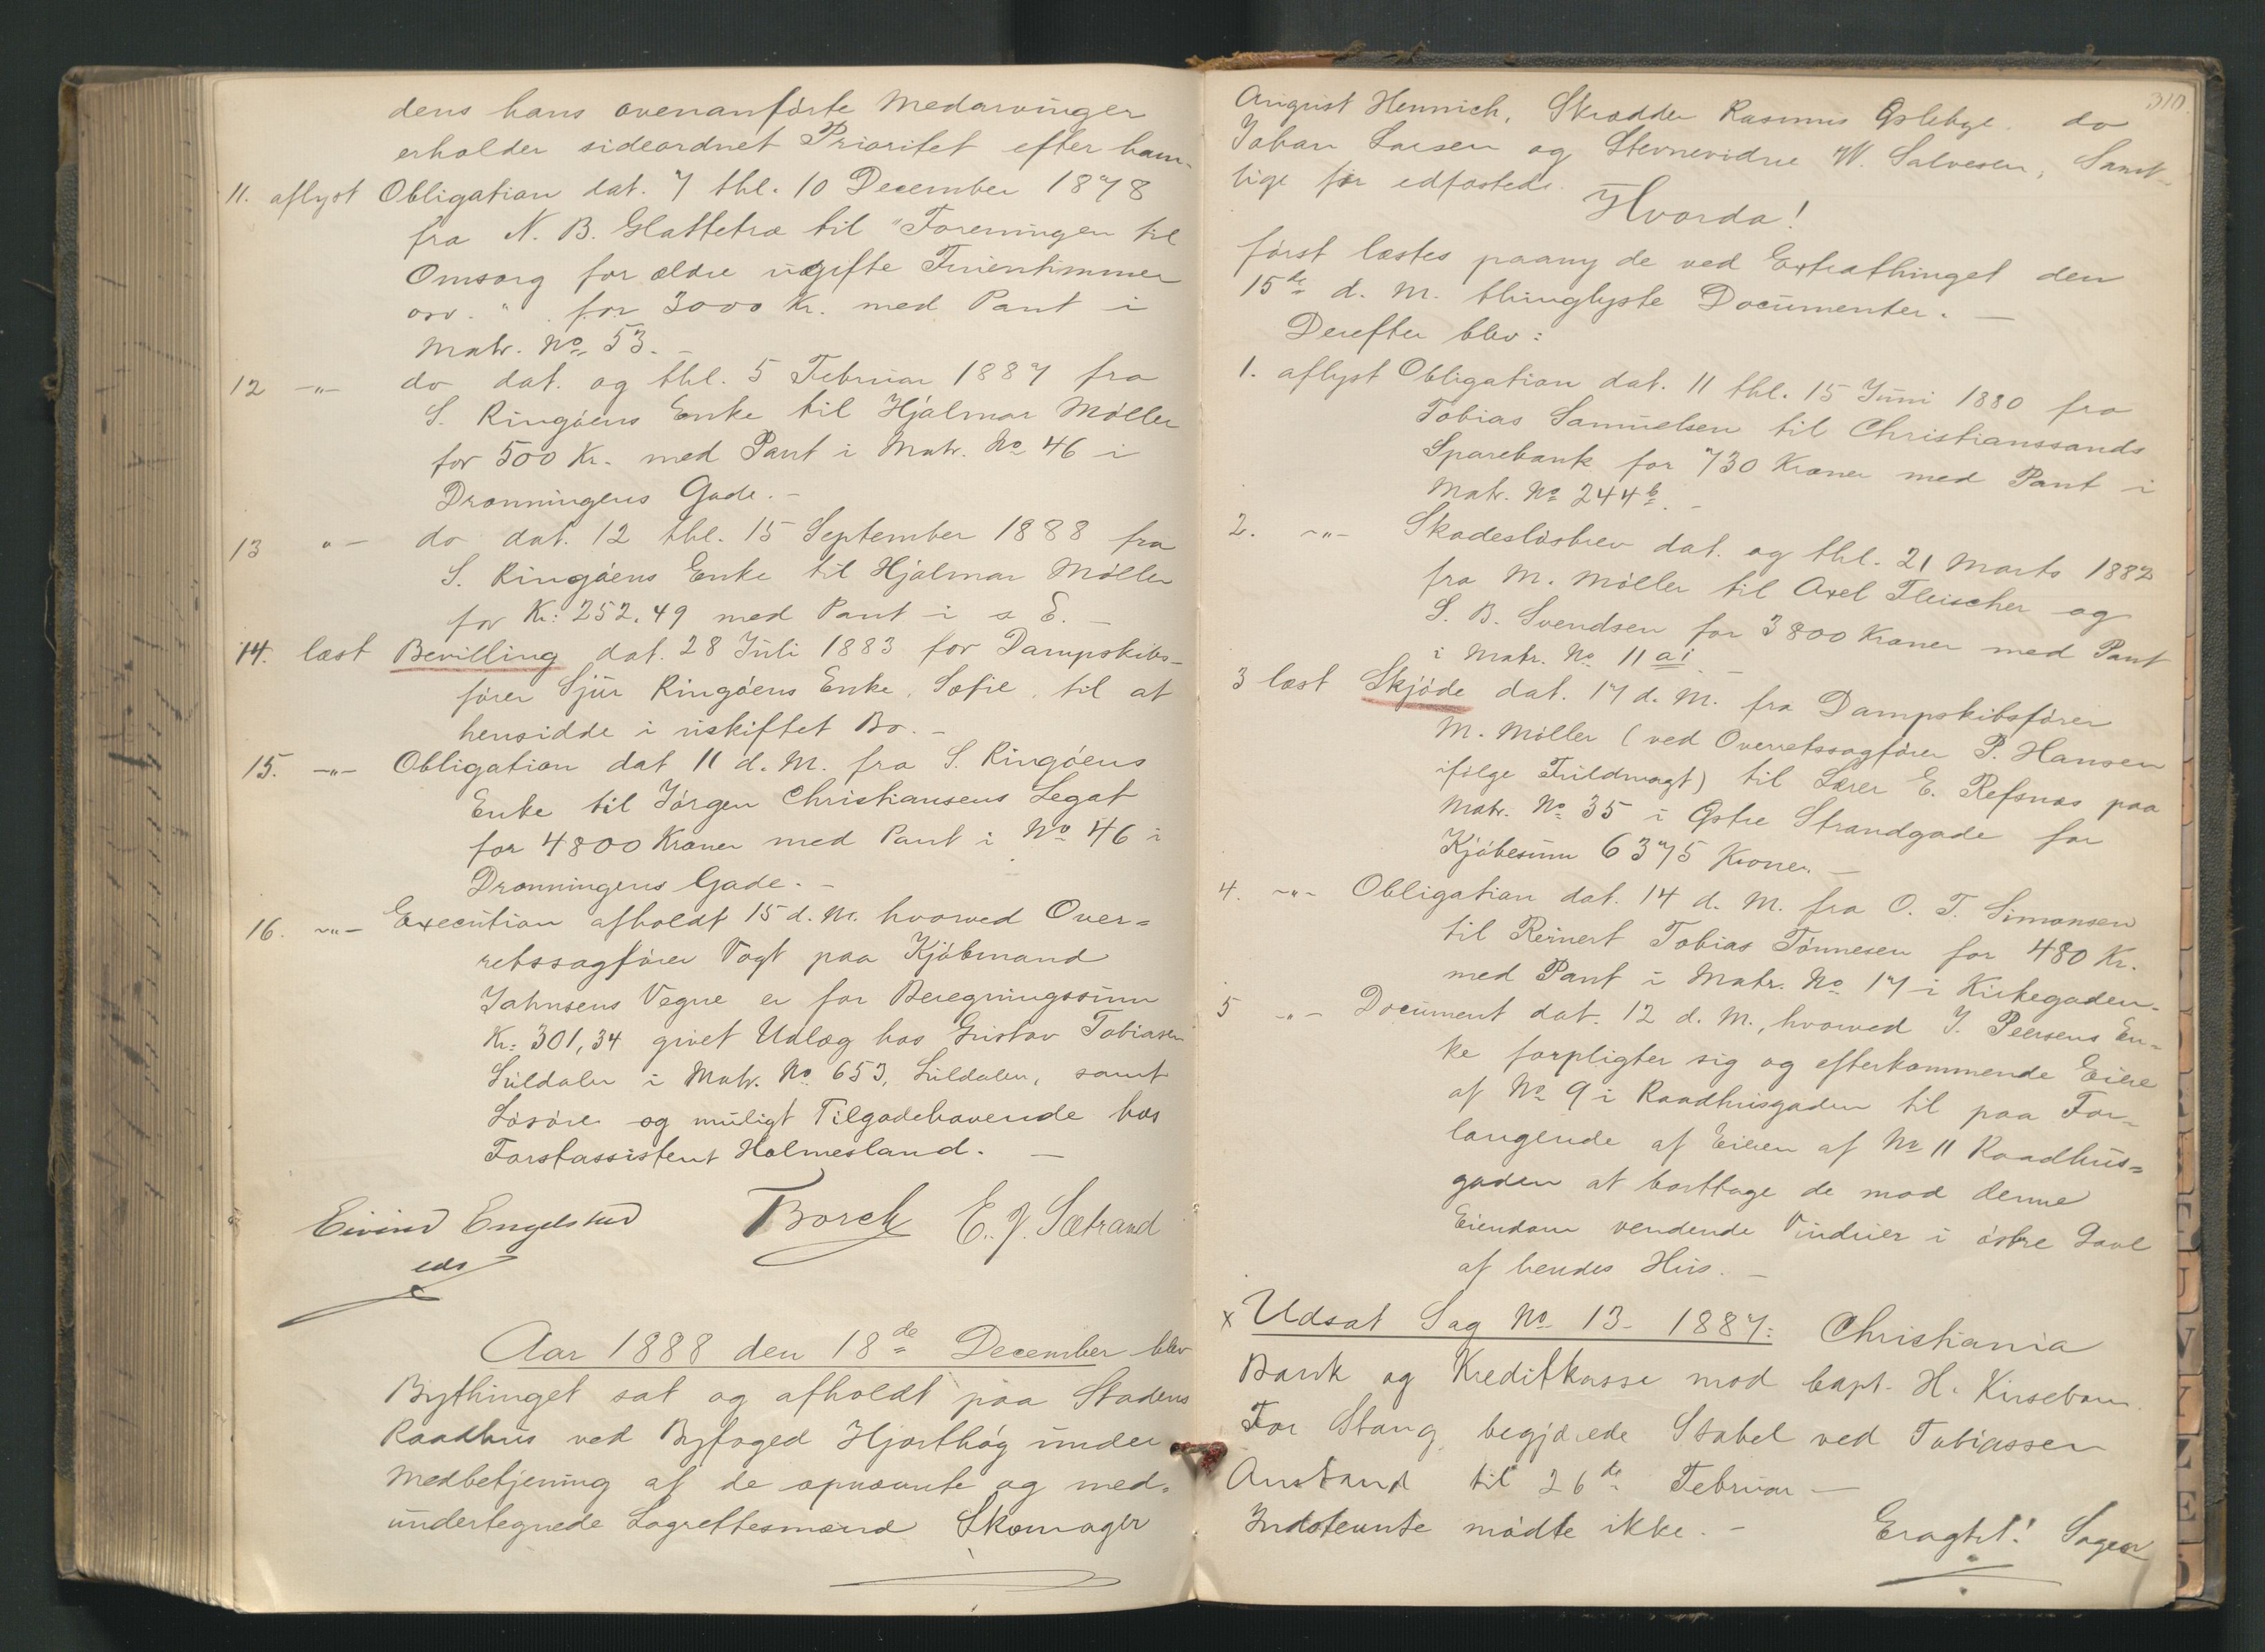 dens hans ovenanførte Medarvinger
erholder sideordnet Prioritet efter ham.
11. aflyst Obligation dat. 7 thl. 10 December 1878
fra N. B. Glattetræ til "Foreningen til
Omsorg for ældre ugifte Fruentimmer
osv. " for 3000 Kr. med Pant i
Matr. No 53. –
12 –"– do dat. og thl. 5 Februar 1887 fra
S. Ringøens Enke til Hjalmar Møller
for 500 Kr. med Pant i Matr. No 46 i
Dronningens Gade. –
13 "– do dat. 12 thl. 15 September 1888 fra
S. Ringøens Enke til Hjalmar Møller
for Kr: 252,49 med Pant i s E. –
14. læst Bevilling dat. 28 Juli 1883 for Dampskibs-
fører Sjur Ringøens Enke, Sofie, til at
hensidde i uskiftet Bo. –
15. –"– Obligation dat 11 d. M. fra S. Ringøens
Enke til Jørgen Christiansens Legat
for 4800 Kroner med Pant i No 46 i
Dronningens Gade. –
16. –"– Execution afholdt 15 d. M. hvorved Over=
retssagfører Vogt paa Kjøbmand
Jahnsens Vegne er for Beregningssum
Kr: 301,34 givet Udlæg hos Gustav Tobiasen
Suldalen i Matr. No 653, Suldalen, samt
Løsøre og muligt Tilgodehavende hos
Forstassistent Holmesland. –
Eivind Engelstad TBorch E. J. Sætrand
eds
Aar 1888 den 18de December blev
Bythinget sat og afholdt paa Stadens
Raadhus ved Byfoged Hjorthøg under
Medbetjening af de opnævnte og med=
undertegnede Lagrettesmænd Skomager
310.
August Hennich, Skrædder Rasmus Øslebye, do
Johan Larsen og Stevnevidne W. Salvesen, Samt-
lige før edfæstede.
Hvorda!
først læstes paany de ved Extrathinget den
15de d. M. thinglyste Documenter. –
Derefter blev:
1. aflyst Obligation dat. 11 thl. 15 Juni 1880 fra
Tobias Samuelsen til Christianssands
Sparebank for 730 Kroner med Pant i
Matr. No 244b. –
2. –"– Skadesløsbrev dat. og thl. 21 Marts 1882
fra M. Møller til Axel Fleischer og
S. B. Svendsen for 3800 Kroner med Pant
i Matr. No 11 a1. –
3 læst Skjøde dat. 17 d. M. fra Dampskibsfører
M. Møller (ved Overretssagfører P. Hansen
ifølge Fuldmagt) til Lærer E. Refsnæs paa
Matr. No 35 i Østre Strandgade for
Kjøbesum 6375 Kroner. –
4. –"– Obligation dat. 14 d. M. fra O. T. Simonsen
til Reinert Tobias Tønnesen for 480 Kr.
med Pant i Matr. No 17 i Kirkegaden.
5 –"– Document dat. 12 d. M., hvorved J. Peersens En=
ke forpligter sig og efterkommende Eiere
af No 9 i Raadhusgaden til paa For-
langende af Eieren af No 11 Raadhus=
gaden at borttage de mod denne
Eiendom vendende Vinduer i østre Gavl
af hendes Hus. –
x Udsat Sag No 13 – 1887: Christiania
Bank og Kreditkasse mod Capt. H. Kirsebom.
For Stang begjærede Stabel ved Tobiassen
Anstand til 26de Februar –
Indstevnte mødte ikke. – Eragtet! Sagen